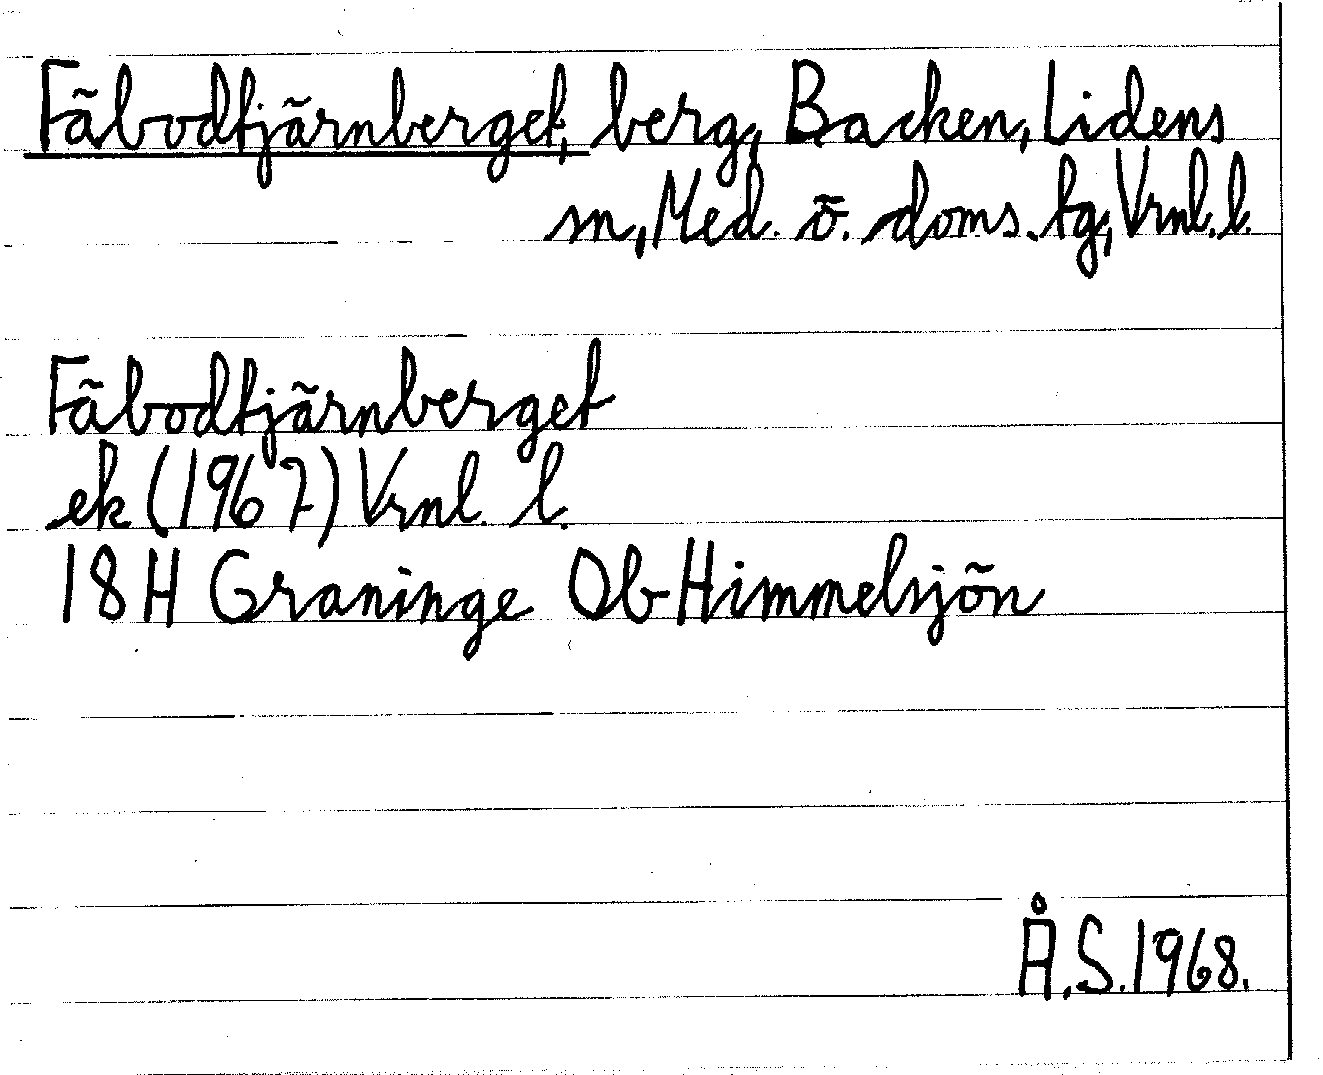 Fäbodtjärnberget, berg, Backen, Lidens
sn, Med. ö. doms. tg, Vrnl. l.
Fäbodtjärnberget
ek (1967) Vrnl. l.
18 H Graninge Ob Himmelsjön
Å. S. 1968.